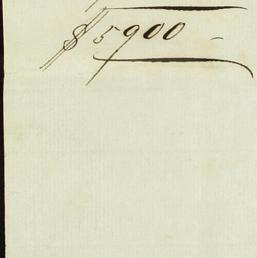 $5900 -